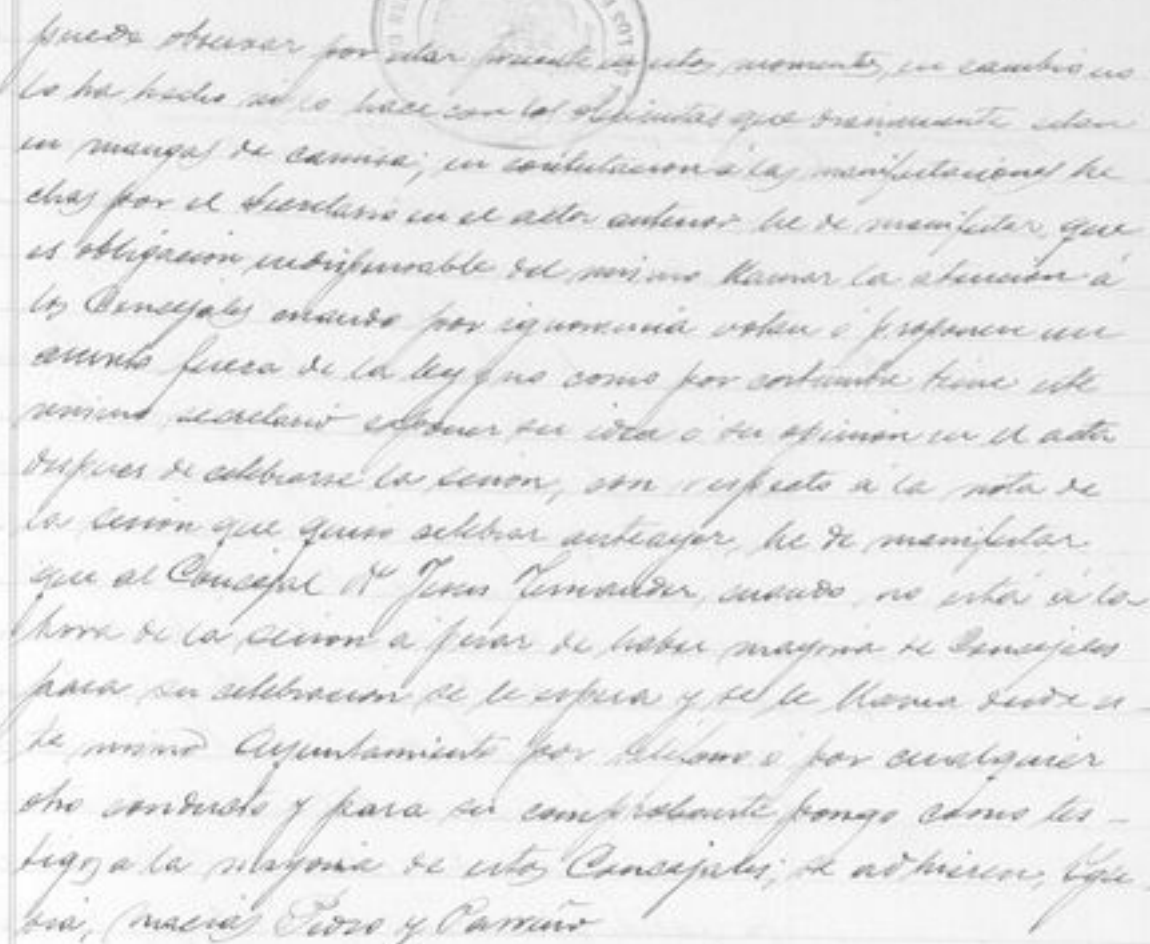 puede observar por estar presente en estos momentos, en cambio no
lo ha hecho ni lo hace con los que diariamente estan
en mangas de camisa; en contestacion á las manifestaciones he
chas por el Secretario en el acta anterior he de manifestar, que
es obligacion indispensable del mismo llamar la atencion á
los Concejales cuando por ignorancia voten ó proponen un
asunto fuera de la ley y no como por costumbre tiene este
mismo secretario exponer su idea ó su opinion en el acta
despues de celebrarse la sesion, con respecto á la nota de
la sesion que quiso celebrar anteayer, he de manifestar
que al Concejal Dn Jesus Fernandez, cuando no está á la
hora de la sesion a pesar de haber mayoria de Concejales
para su celebracion se le espera y se le llama desde es-
te mismo Ayuntamiento por teléfono ó por cualquier
otro conducto y para su comprobante pongo como tes-
tigos a la mayoria de estos Concejales; se adhieren,
Macias Pidro y Carreño